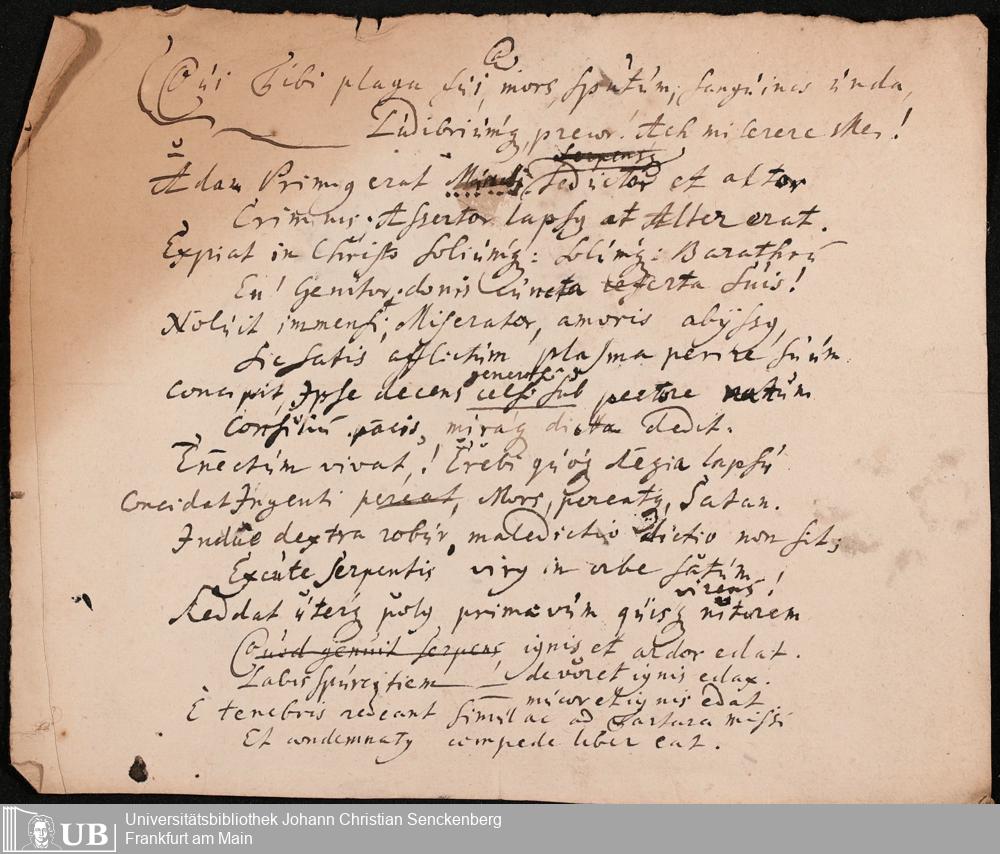 Cui Tibi plaga fui, mors, sputum, sanguinis unda,
Ludibriumq, precor! Ach miserere Mei!
Serpens
Adam Primus erat Maledictor et altor
Criminis; Assertor lapsus at Alter erat.
Expiat in Christo soliumq: solumq: Barathrū
En! Genitor, donis cuncta referta suis!
Noluit immensi, Miserator, amoris abÿssus,
Sic satis afflictum plasma perire suum
generosi
Concipit, Ipse decens celsi sub pectore natum
Consiliū pacis, miraq dicta dedit.
Enectum vivat,! Erebi quoq Regia lapsu
Concidat Ingenti pereat, Mors, pereatq, Satan.
Indue dextra robur, maledictio dictio non sit,
Excute Serpentis virus in orbe satum!
virens
Reddat uterq polus primævum quisq nitorem
Quod genuit serpens ignis et ardor edat.
Labis spurcitiem devoret ignis edax.
ignis edat
E tenebris redeant simulac ad Tartara missi
Et condemnatus compede liber eat.
Universitätsbibliothek Johann Christian Senckenberg
Frankfurt am Main
UB